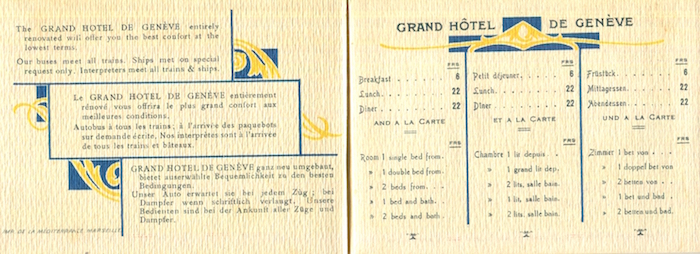 The GRAND HOTEL DE GENÈVE entirely
renovated will offer you the best confort at the
lowest terms.
Our buses meet all trains. Ships met on special
request only. Interpreters meet all trains & ships.
Le GRAND HOTEL DE GENÈVE entièrement
rénové vous offrira le plus grand confort aux
meilleures conditions.
Autobus à tous les trains; à l'arrivée des paquebots
sur demande écrite. Nos interprètes sont à l'arrivée
de tous les trains et bâteaux.
GRAND HOTEL DE GENÈVE ganz neu umgebaut,
bietet auserwählte Bequemlichkeit zu den besten
Bedingungen.
Unser Auto erwartet sie bei jedem Zug; bei
Dampfer wenn schriftlich verlangt. Unsere
Bedienten sind bei der Ankunft aller Züge und
Dampfer.
IMP. DE LA MÉDITERRANÉE MARSEILLE
GRAND HÔTEL DE GENÈVE
FRS
Breakfast . . . . . . 6
Lunch. . . . . . . 22
Diner . . . . . . . 22
AND A LA CARTE
FRS
Room 1 single bed from.
» 1 double bed from.
» 2 beds from. . .
» 1 bed and bath. .
» 2 beds and bath. .
FRS
Petit déjeuner. . . . 6
Lunch. . . . . . . 22
Dîner . . . . . . . 22
ET A LA CARTE
FRS
Chambre 1 lit depuis . .
» 1 grand lit dep.
» 2 lits, salle bain.
» 1 lit, salle bain.
» 2 lits, salle bain.
FRS
Früstück. . . . . . 6
Mittagessen. . . . 22
Abendessen. . . . 22
UND A LA CARTE
FRS
Zimmer 1 bet von . . .
» 1 doppel bet von
» 2 beten von . . .
» 1 bet und bad .
» 2 beten und bad.